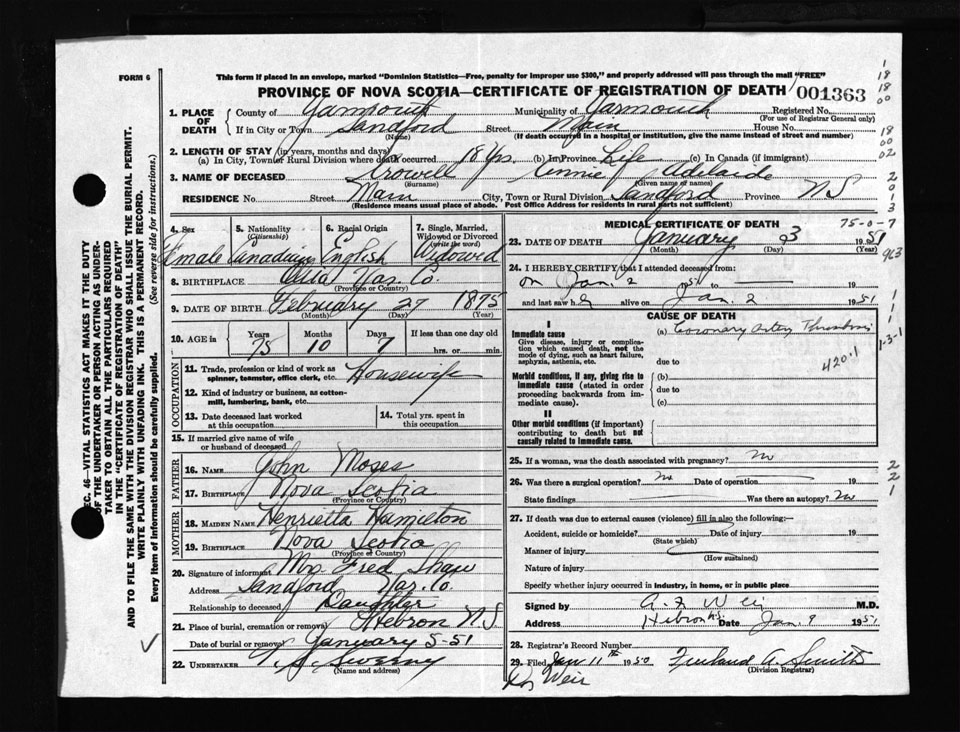 This form if placed in an envelope, marked "Dominion Statistics—Free, penalty for improper use $300," and properly addressed will pass through the mail "FREE"
FORM 6
PROVINCE OF NOVA SCOTIA—CERTIFICATE OF REGISTRATION OF DEATH 001363
SEC. 46—VITAL STATISTICS ACT MAKES IT THE DUTY
OF THE UNDERTAKER OR PERSON ACTING AS UNDER-
TAKER TO OBTAIN ALL THE PARTICULARS REQUIRED
IN THE "CERTIFICATE OF REGISTRATION OF DEATH"
AND TO FILE THE SAME WITH THE DIVISION REGISTRAR WHO SHALL ISSUE THE BURIAL PERMIT.
WRITE PLAINLY WITH UNFADING INK. THIS IS A PERMANENT RECORD.
Every item of Information should be carefully supplied. (See reverse side for instructions.)
1. PLACE OF DEATH
County of Yarmouth Municipality of Yarmouth Registered No.
(For use of Registrar General only)
If in City or Town Sandford Street Main House No.
(Name) (If death occurred in a hospital or institution, give the name instead of street and number)
2. LENGTH OF STAY (in years, months and days)
(a) In City, Town or Rural Division where death occurred 18 Yrs. (b) In Province Life (c) In Canada (if immigrant)
3. NAME OF DECEASED Crowell Annie Adelaide
(Surname) (Given name or names)
RESIDENCE No. Street Main City, Town or Rural Division Sandford Province NS
(Residence means usual place of abode. Post Office Address for residents in rural parts not sufficient)
4. Sex 5. Nationality (Citizenship) 6. Racial Origin 7. Single, Married, Widowed or Divorced (write the word)
Female Canadian English Widowed
8. BIRTHPLACE Yar. Co.
(Province or Country)
9. DATE OF BIRTH February 27 1875
(Month) (Day) (Year)
10. AGE in Years Months Days If less than one day old
75 10 7 hrs. or min.
OCCUPATION
11. Trade, profession or kind of work as spinner, teamster, office clerk, etc. Housewife
12. Kind of industry or business, as cotton-mill, lumbering, bank, etc.
13. Date deceased last worked at this occupation 14. Total yrs. spent in this occupation
15. If married give name of wife or husband of deceased
FATHER
16. NAME John Moses
17. BIRTHPLACE Nova Scotia
(Province or Country)
MOTHER
18. MAIDEN NAME Henrietta Hamilton
19. BIRTHPLACE Nova Scotia
(Province or Country)
20. Signature of informant Mrs Fred Shaw
Address Sandford Yar. Co.
Relationship to deceased Daughter
21. Place of burial, cremation or removal Hebron N.S
Date of burial or removal January 5-51
22. UNDERTAKER Sweeny
(Name and address)
MEDICAL CERTIFICATE OF DEATH 75-0-7
23. DATE OF DEATH January 03 1951
(Month) (Day) (Year)
24. I HEREBY CERTIFY that I attended deceased from:
on Jan. 2 1951 to 19
and last saw her alive on Jan. 2 1951
CAUSE OF DEATH
I
Immediate cause (a) Coronary Artery Thrombosis
Give disease, injury or complication which caused death, not the mode of dying, such as heart failure, asphyxia, asthenia, etc.
due to
420.1
Morbid conditions, if any, giving rise to immediate cause (stated in order proceeding backwards from immediate cause).
(b)
due to
(c)
II
Other morbid conditions (if important) contributing to death but not causally related to immediate cause.
25. If a woman, was the death associated with pregnancy? No
26. Was there a surgical operation? No Date of operation 19
State findings Was there an autopsy? No
27. If death was due to external causes (violence) fill in also the following:—
Accident, suicide or homicide? Date of injury 19
(State which)
Manner of injury
(How sustained)
Nature of injury
Specify whether injury occurred in industry, in home, or in public place
Signed by A. F. Weir M.D.
Address Hebron N.S. Date Jan. 9 1951
28. Registrar's Record Number
29. Filed Jan 11th 1950 A. Smith
(Division Registrar)
Dr Weir